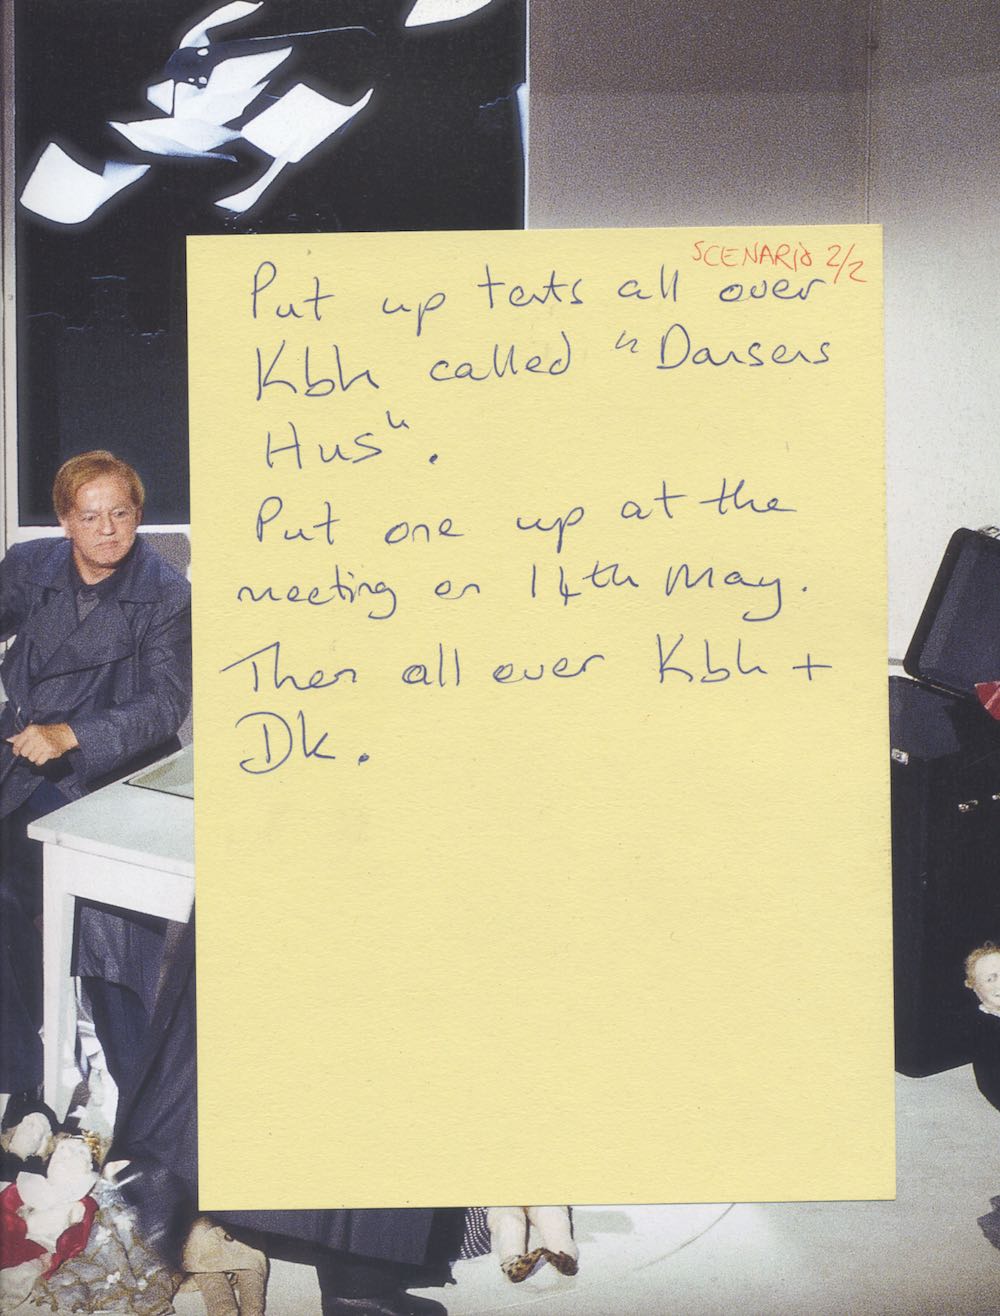 SCENARIO 2/2
Put up tents all over
Kbh called "Dansens
Hus".
Put one up at the
meeting on 14th May.
Then all over Kbh +
Dk.